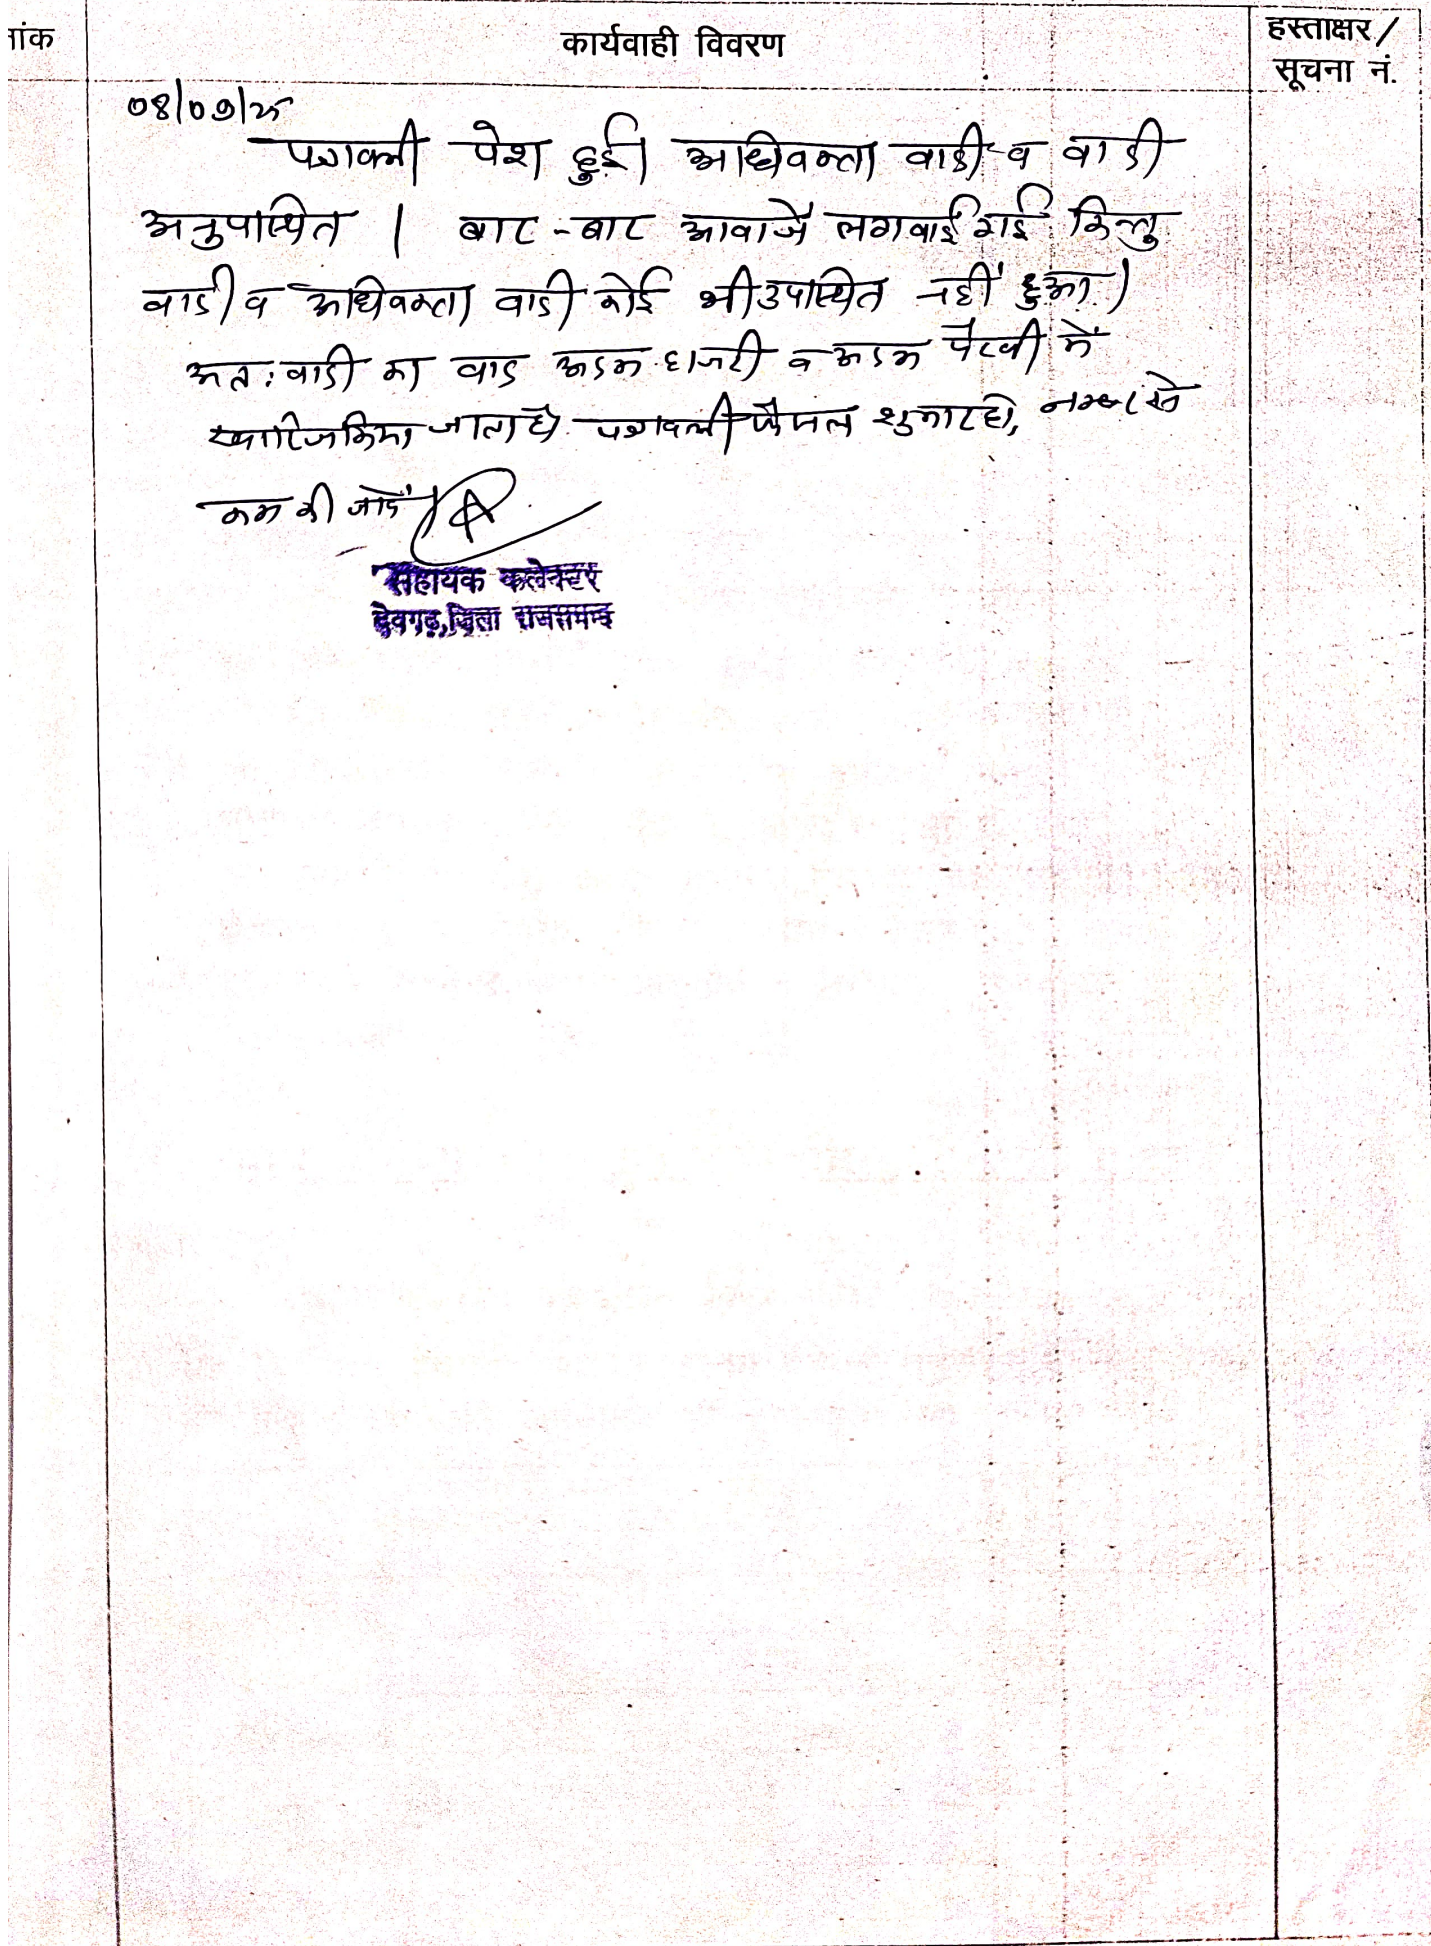 नांक
कार्यवाही विवरण
हस्ताक्षर/
सूचना नं.
08/09/25
पत्रावली पेश हुई। अधिवक्ता वादी व वादी
अनुपस्थित । बार-बार आवाजें लगवाई गई किन्तु
वादी व अधिवक्ता वादी कोई भी उपस्थित नहीं हुआ।
अतः वादी का वाद अदम हाजरी व अदम पैरवी में
खारिज किया जाता है. पत्रावली फैसल शुमार हो, नम्बर से
कम की जावें
सहायक कलेक्टर
देवगढ़, जिला राजसमन्द